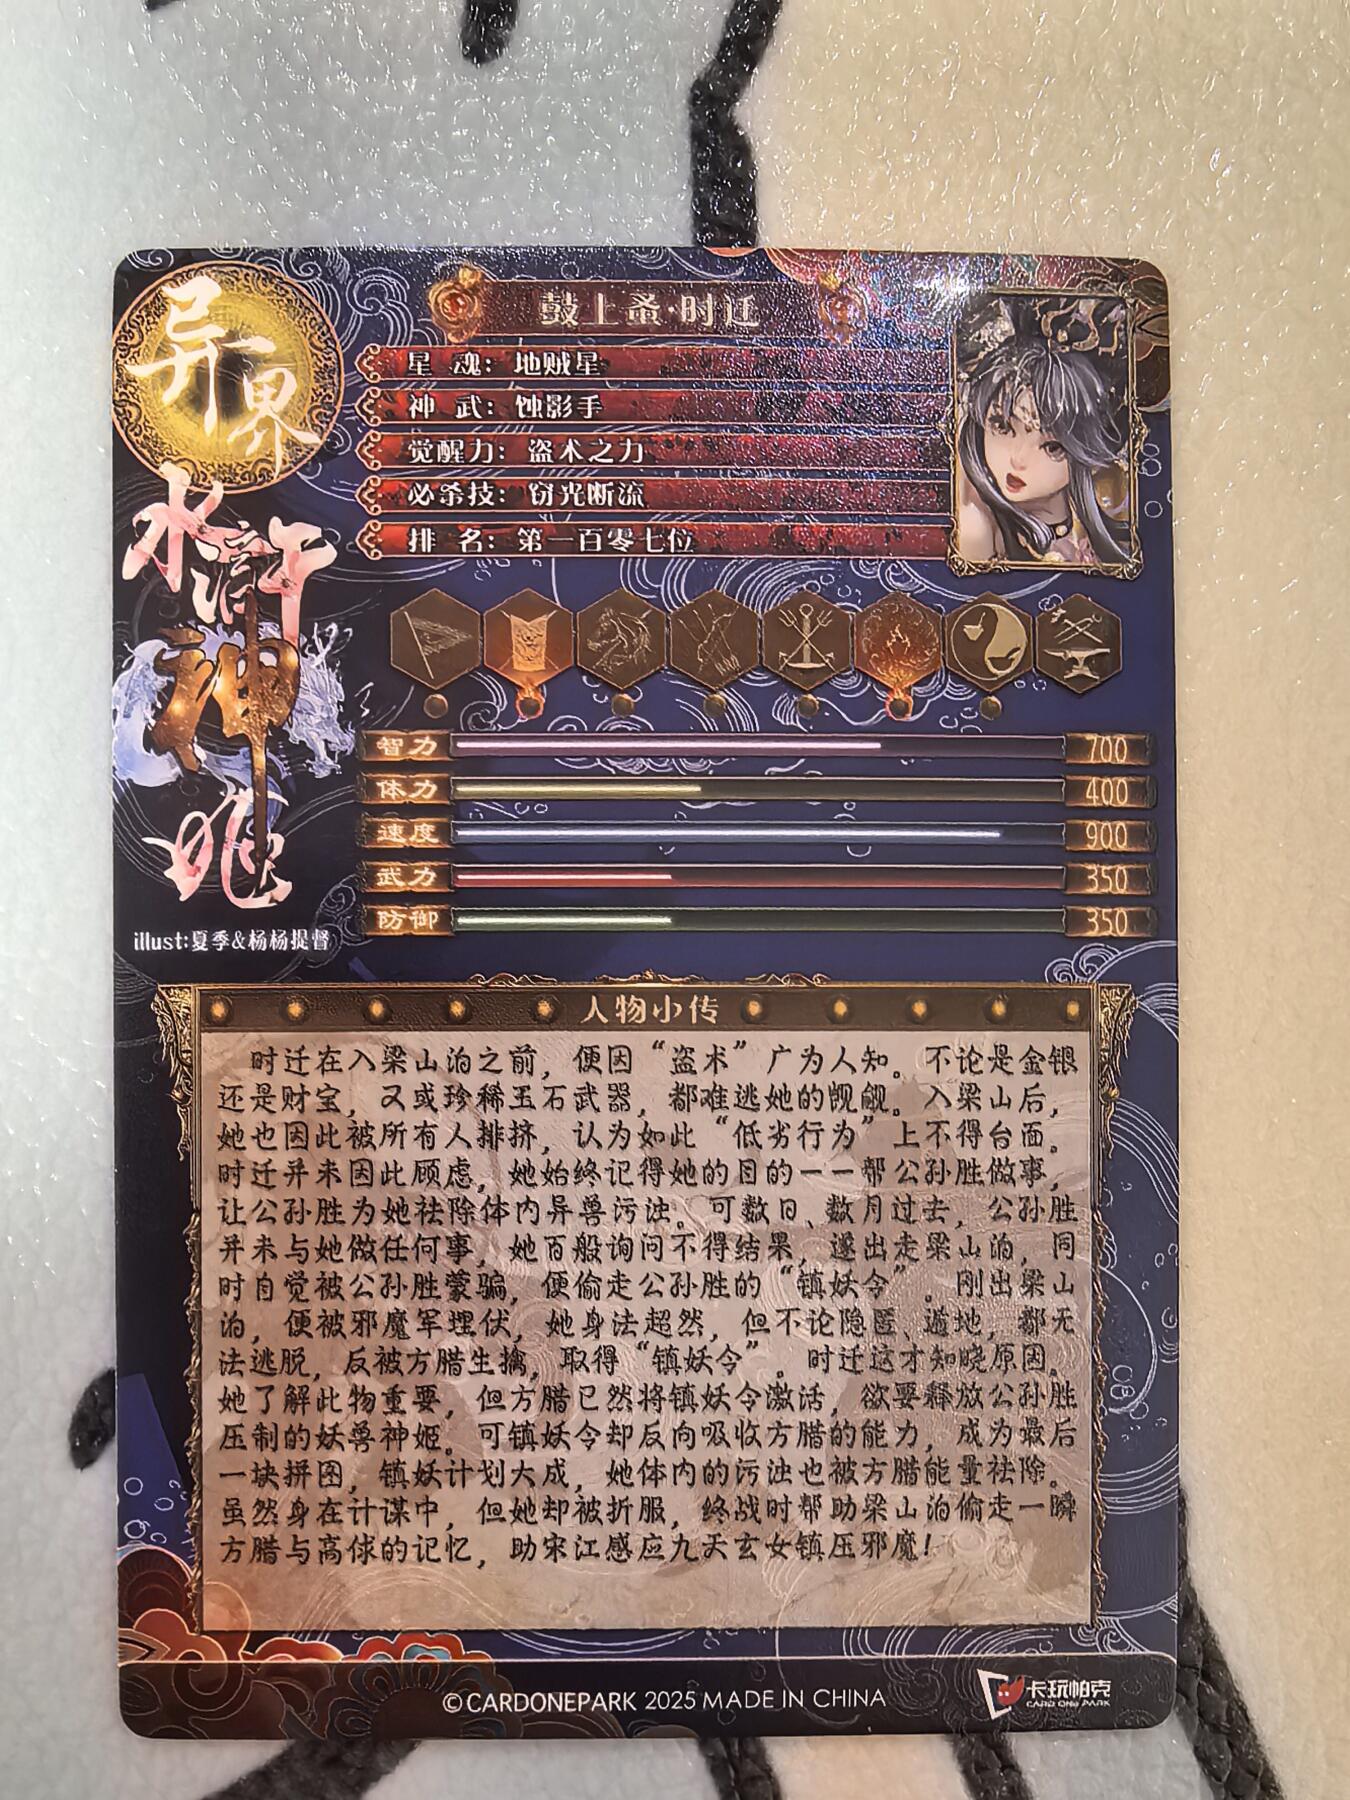 异界
水浒
神
姬
illust:夏季&杨杨提督
鼓上蚤·时迁
星 魂：地贼星
神 武：蚀影手
觉醒力：盗术之力
必杀技：窃光断流
排 名：第一百零七位
智力 700
体力 400
速度 900
武力 350
防御 350
人物小传
时迁在入梁山泊之前，便因“盗术”广为人知。不论是金银
还是财宝，又或珍稀玉石武器，都难逃她的觊觎。入梁山后，
她也因此被所有人排挤，认为如此“低劣行为”上不得台面。
时迁并未因此顾虑，她始终记得她的目的——帮公孙胜做事，
让公孙胜为她祛除体内异兽污浊。可数日、数月过去，公孙胜
并未与她做任何事，她百般询问不得结果，遂出走梁山泊，同
时自觉被公孙胜蒙骗，便偷走公孙胜的“镇妖令”。刚出梁山
泊，便被邪魔军埋伏，她身法超然，但不论隐匿、遁地，都无
法逃脱，反被方腊生擒，取得“镇妖令”。时迁这才知晓原因。
她了解此物重要，但方腊已然将镇妖令激活，欲要释放公孙胜
压制的妖兽神姬。可镇妖令却反向吸收方腊的能力，成为最后
一块拼图，镇妖计划大成，她体内的污浊也被方腊能量祛除。
虽然身在计谋中，但她却被折服，终战时帮助梁山泊偷走一瞬
方腊与高俅的记忆，助宋江感应九天玄女镇压邪魔！
©CARDONEPARK 2025 MADE IN CHINA
卡玩帕克
CARD ONE PARK